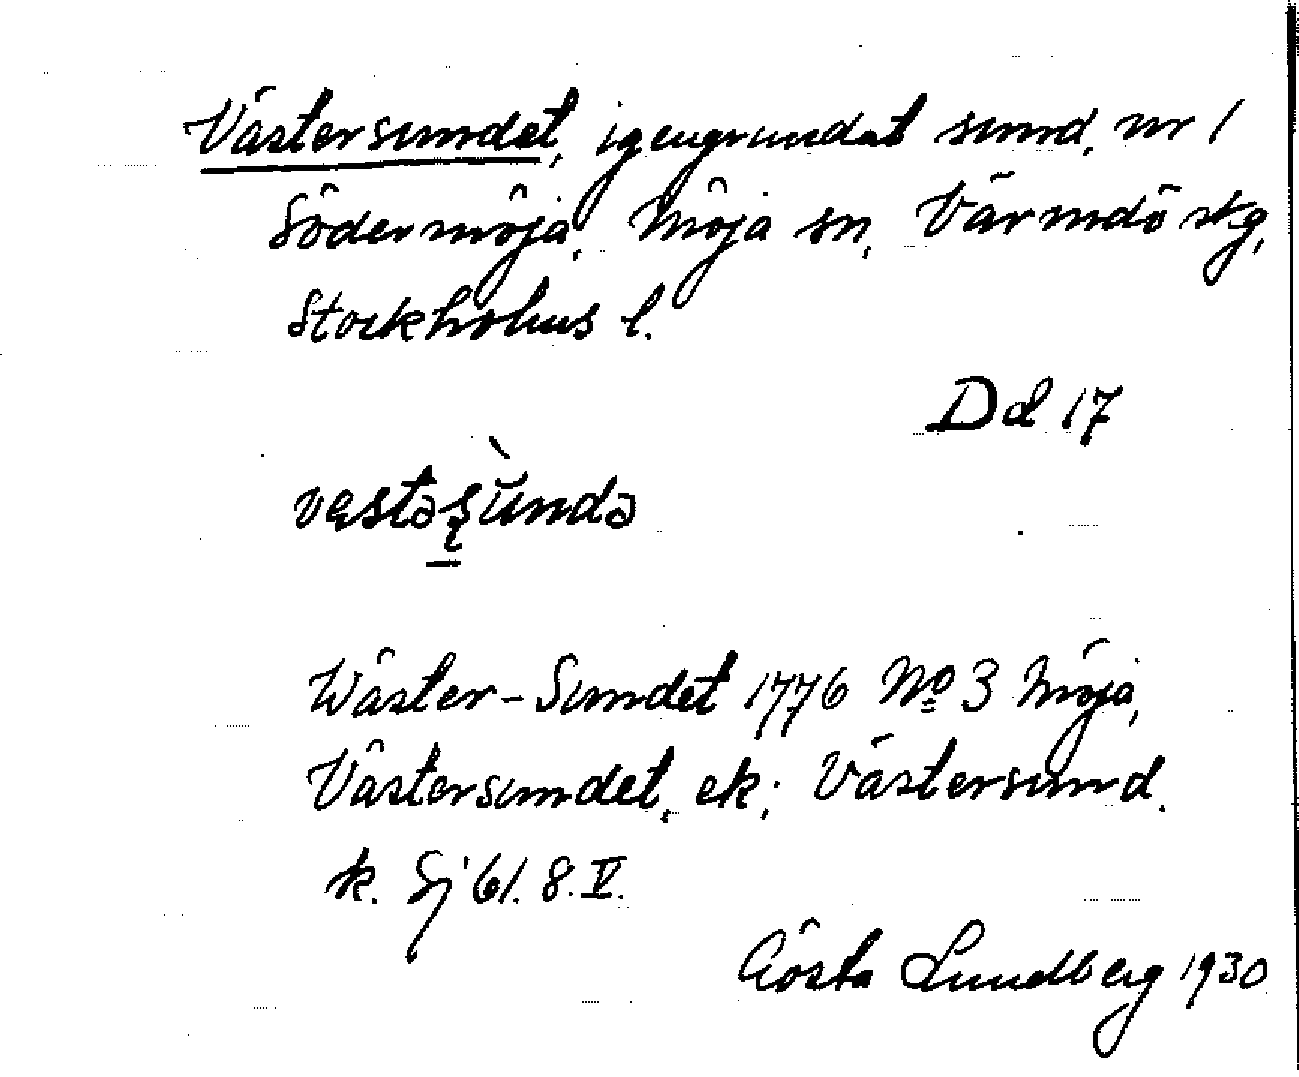 Västersundet, igengrundat sund, nr 1
Södermöja, Möja sn, Värmdö skg,
Stockholms l.
Dd 17
vęstəʂùndə
Wäster-Sundet 1776 No 3 Möja,
Västersundet, ek; Västersund.
k. Sj 61. 8. V.
Gösta Lundberg 1930